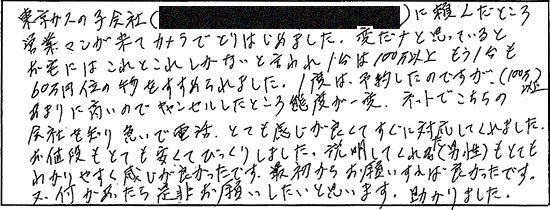 東京ガスの子会社( )に頼んだところ
営業マンが来てカメラでとりはじめました。変だナと思っていると
お宅にはこれとこれしかないと言われ1台は100万以上 もう1台も
60万円位の物をすすめられました。1度は、予約したのですが、(100万以上)
あまりに高いのでキャンセルしたところ態度が一変、ネットでこちらの
会社を知り急いで電話、とても感じが良くてすぐに対応してくれました。
お値段もとても安くてびっくりしました。説明してくれた方(男性)もとても
わかりやすく感じが良かったです。最初からお願いすれば良かったです。
又、何かあったら是非お願いしたいと思います。助かりました。